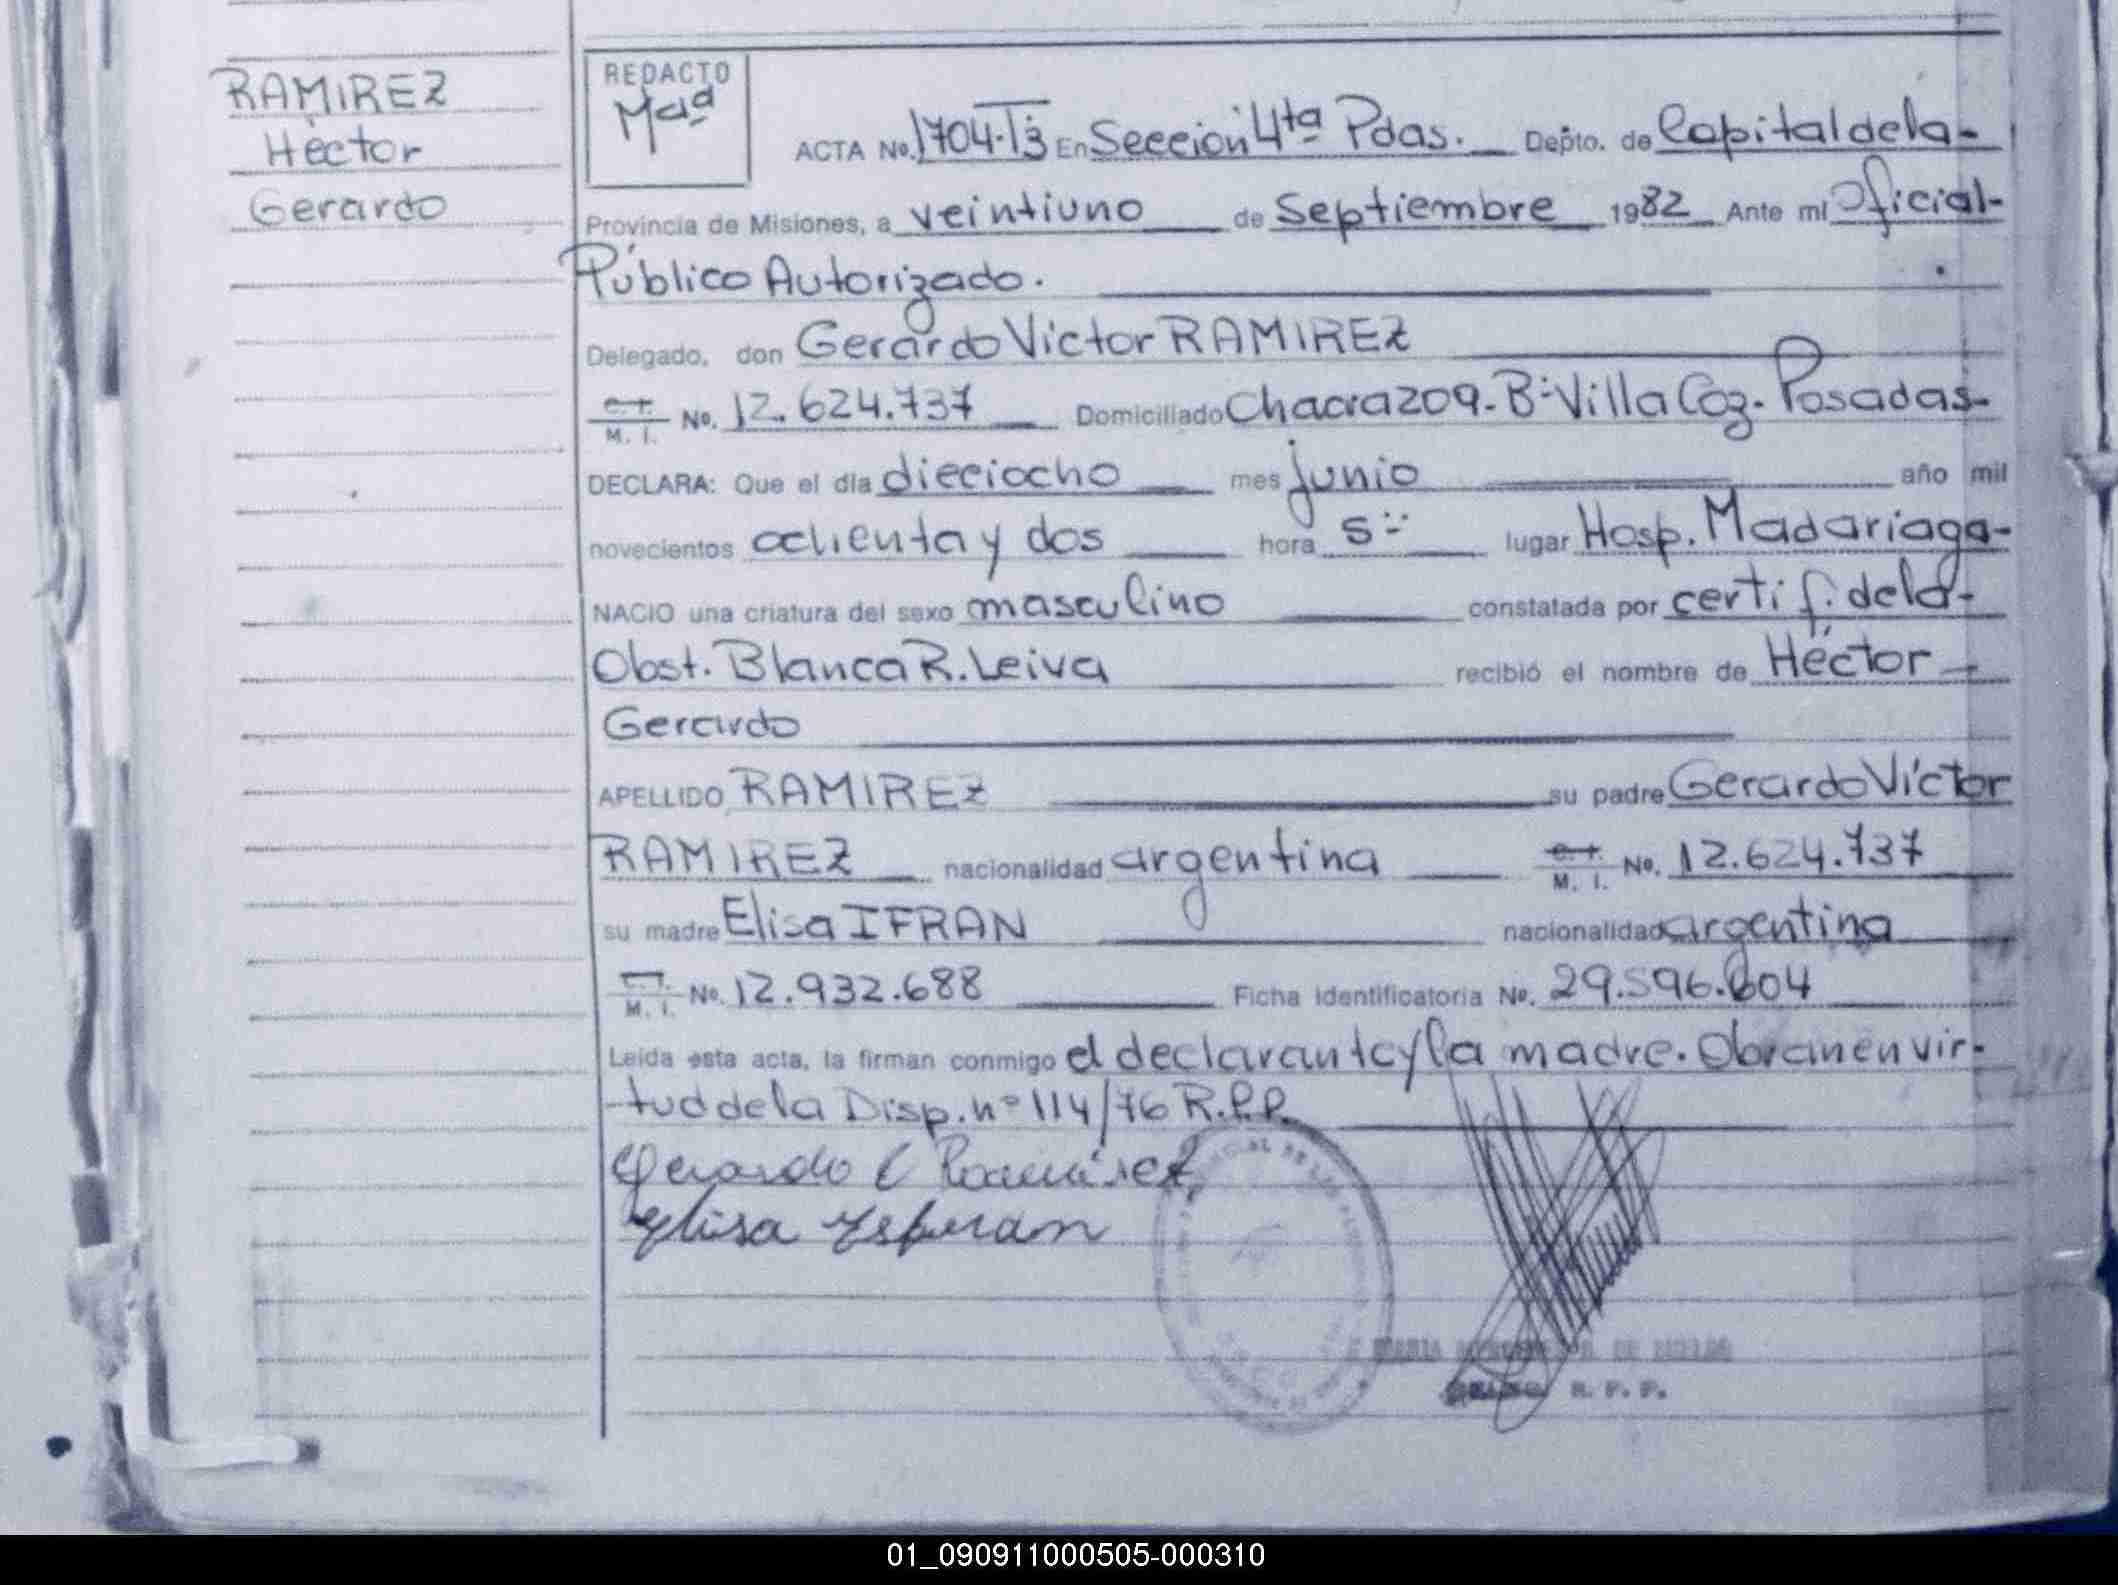 RAMIREZ
Héctor
Gerardo
REDACTO
Mªª
ACTA No. 1704-T3 En Sección 4ta Pdas. Depto. de Capital de la-
Provincia de Misiones, a veintiuno de Septiembre 1982 Ante mi Oficial-
Público Autorizado.
Delegado, don Gerardo Victor RAMIREZ
C. I.
M. I. No. 12.624.737 Domiciliado Chacra 209-Bº Villa Coz- Posadas-
DECLARA: Que el día dieciocho mes junio año mil
novecientos ochenta y dos hora 5 lugar Hosp. Madariaga-
NACIO una criatura del sexo masculino constatada por certif. de la-
Obst. Blanca R. Leiva recibió el nombre de Héctor
Gerardo
APELLIDO RAMIREZ su padre Gerardo Víctor
RAMIREZ nacionalidad argentina C. I.
M. I. No. 12.624.737
su madre Elisa IFRAN nacionalidad argentina
C. I.
M. I. No. 12.932.688 Ficha Identificatoria No. 29.596.604
Leída esta acta, la firman conmigo el declarante y la madre. Obran en vir-
tud de la Disp. nº 114/76 R.P.P.
Gerardo Ramirez
Elisa
MARIA DE
R. P. P.
01_090911000505-000310